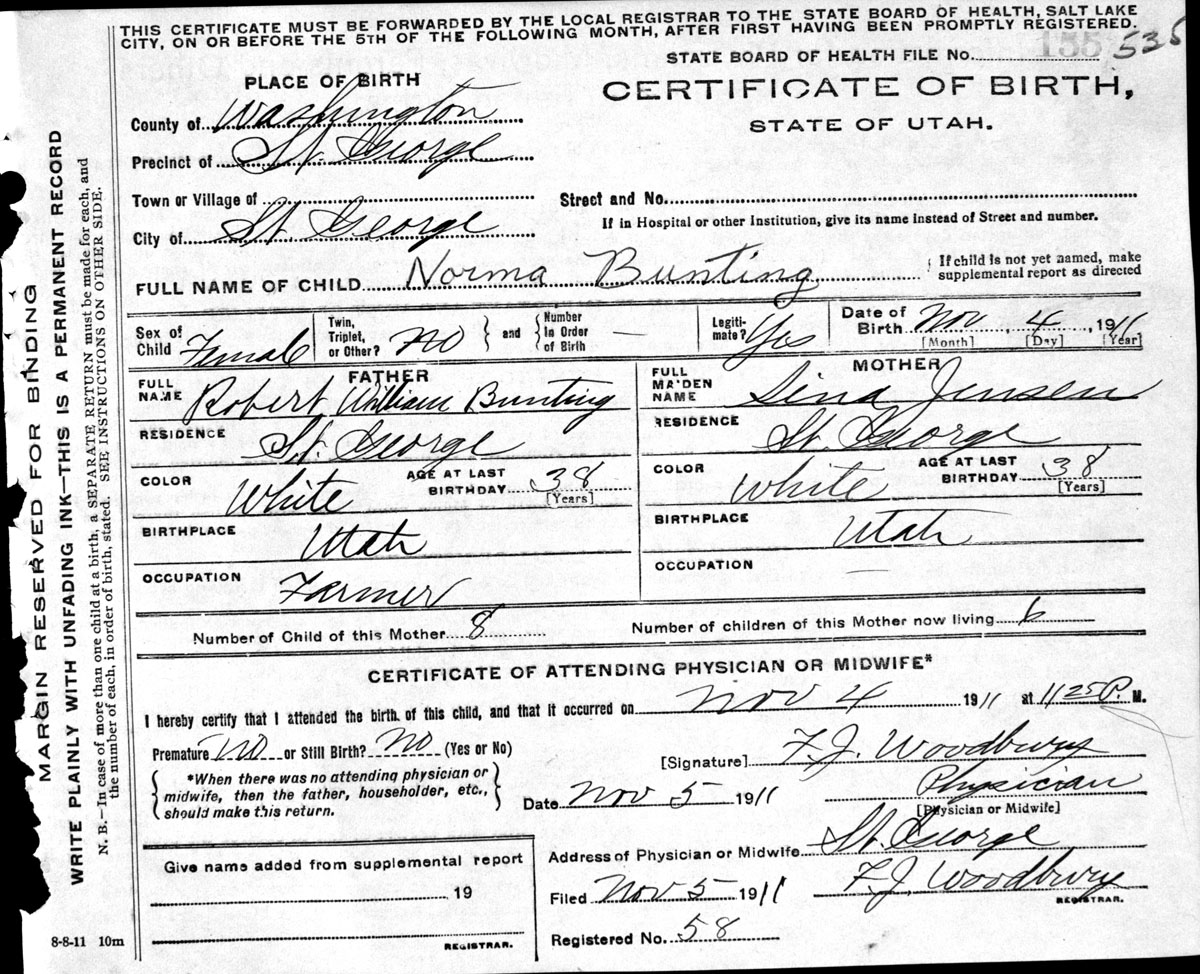 THIS CERTIFICATE MUST BE FORWARDED BY THE LOCAL REGISTRAR TO THE STATE BOARD OF HEALTH, SALT LAKE
CITY, ON OR BEFORE THE 5TH OF THE FOLLOWING MONTH, AFTER FIRST HAVING BEEN PROMPTLY REGISTERED.
STATE BOARD OF HEALTH FILE No. 535
PLACE OF BIRTH
CERTIFICATE OF BIRTH,
STATE OF UTAH.
County of Washington
Precinct of St. George
Town or Village of
Street and No.
If in Hospital or other Institution, give its name instead of Street and number.
City of St George
FULL NAME OF CHILD Norma Bunting
If child is not yet named, make
supplemental report as directed
Sex of
Child Female
Twin,
Triplet,
or Other? No
and
Number
In Order
of Birth —
Legiti-
mate? Yes
Date of
Birth Nov 4, 1911
[Month] [Day] [Year]
FATHER
FULL
NAME Robert William Bunting
RESIDENCE St. George
COLOR White
AGE AT LAST
BIRTHDAY 38
[Years]
BIRTHPLACE Utah
OCCUPATION Farmer
MOTHER
FULL
MAIDEN
NAME Sena Jensen
RESIDENCE St. George
COLOR White
AGE AT LAST
BIRTHDAY 38
[Years]
BIRTHPLACE Utah
OCCUPATION —
Number of Child of this Mother 8
Number of children of this Mother now living 6
CERTIFICATE OF ATTENDING PHYSICIAN OR MIDWIFE*
I hereby certify that I attended the birth of this child, and that it occurred on Nov 4 1911 at 11 25 P. M.
Premature No or Still Birth? No (Yes or No)
*When there was no attending physician or
midwife, then the father, householder, etc.,
should make this return.
[Signature] F. J. Woodbury
Date Nov 5 1911
Physician
[Physician or Midwife]
Address of Physician or Midwife St. George
Give name added from supplemental report
19
REGISTRAR.
Filed Nov 5 1911
F J Woodbury
REGISTRAR.
Registered No. 58
8-8-11 10m
MARGIN RESERVED FOR BINDING
WRITE PLAINLY WITH UNFADING INK—THIS IS A PERMANENT RECORD
N. B.—In case of more than one child at a birth, a SEPARATE RETURN must be made for each, and
the number of each, in order of birth, stated. SEE INSTRUCTIONS ON OTHER SIDE.